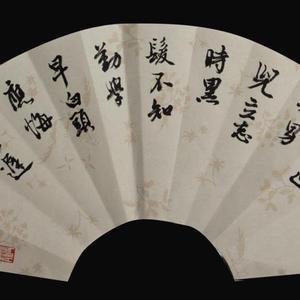 男
兒立志
時黑
髮不知
勤學
早白頭
應悔
遲